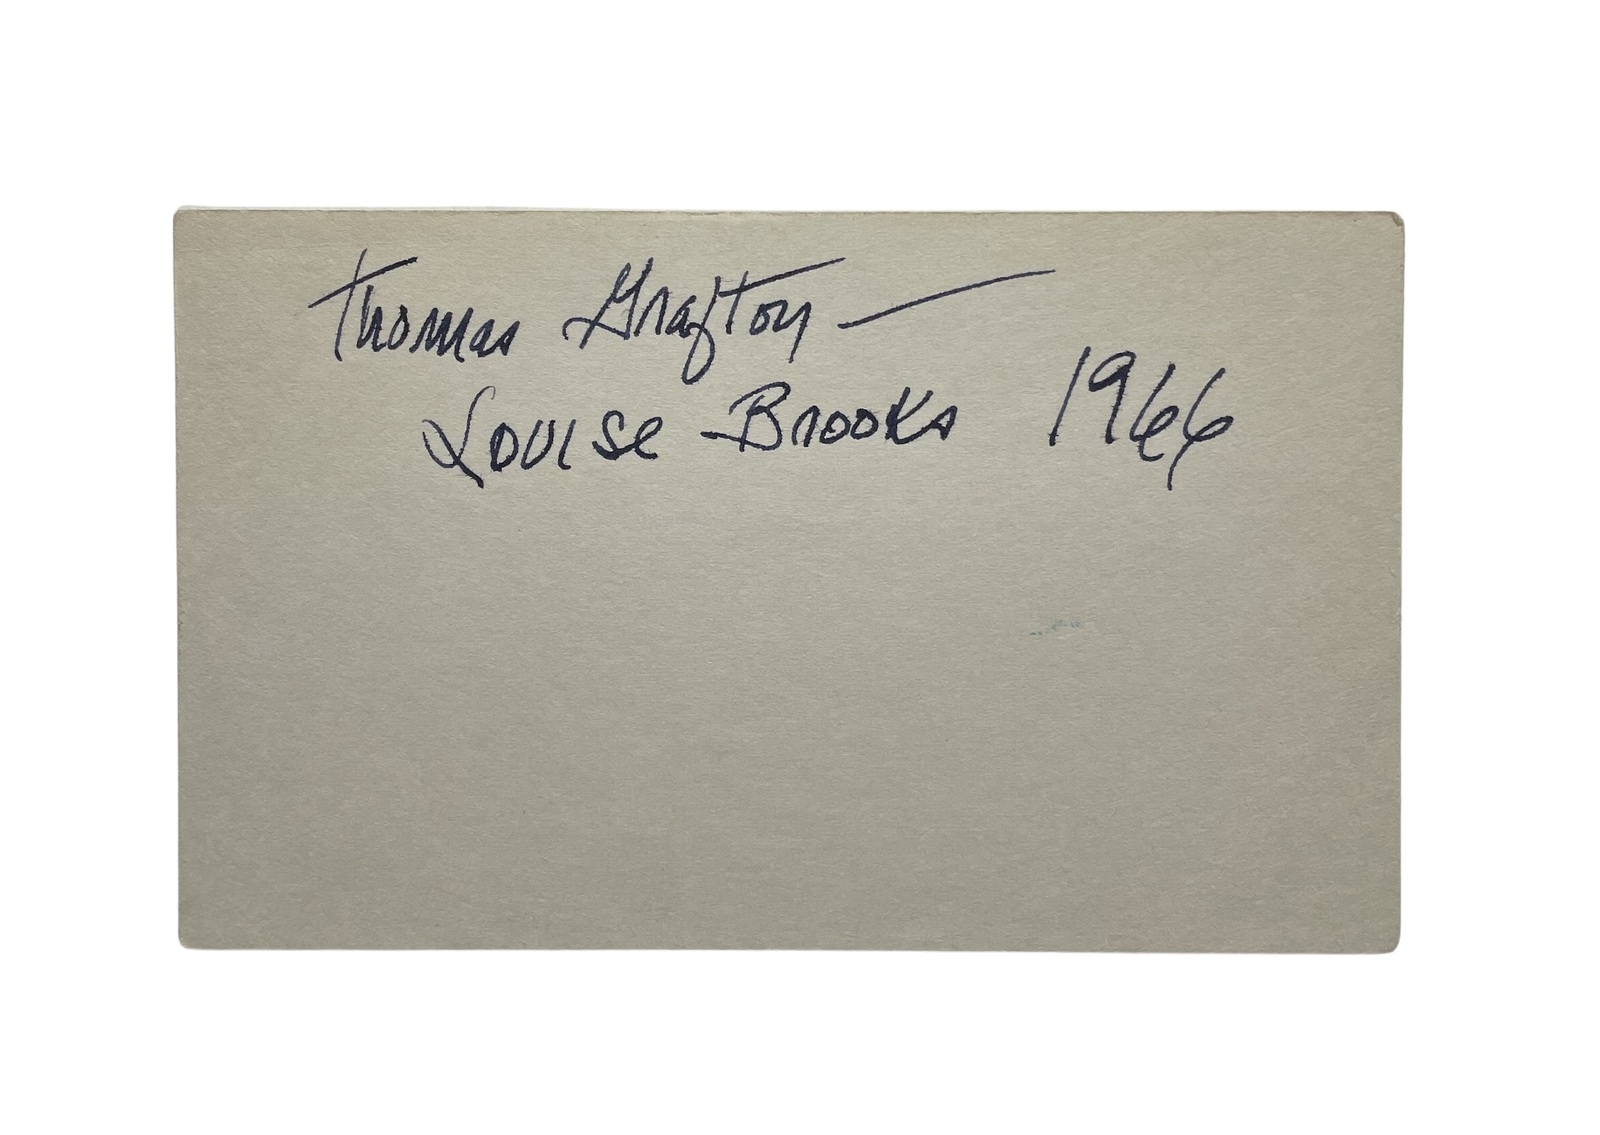 Thomas Grafton —
Louise Brooks 1966